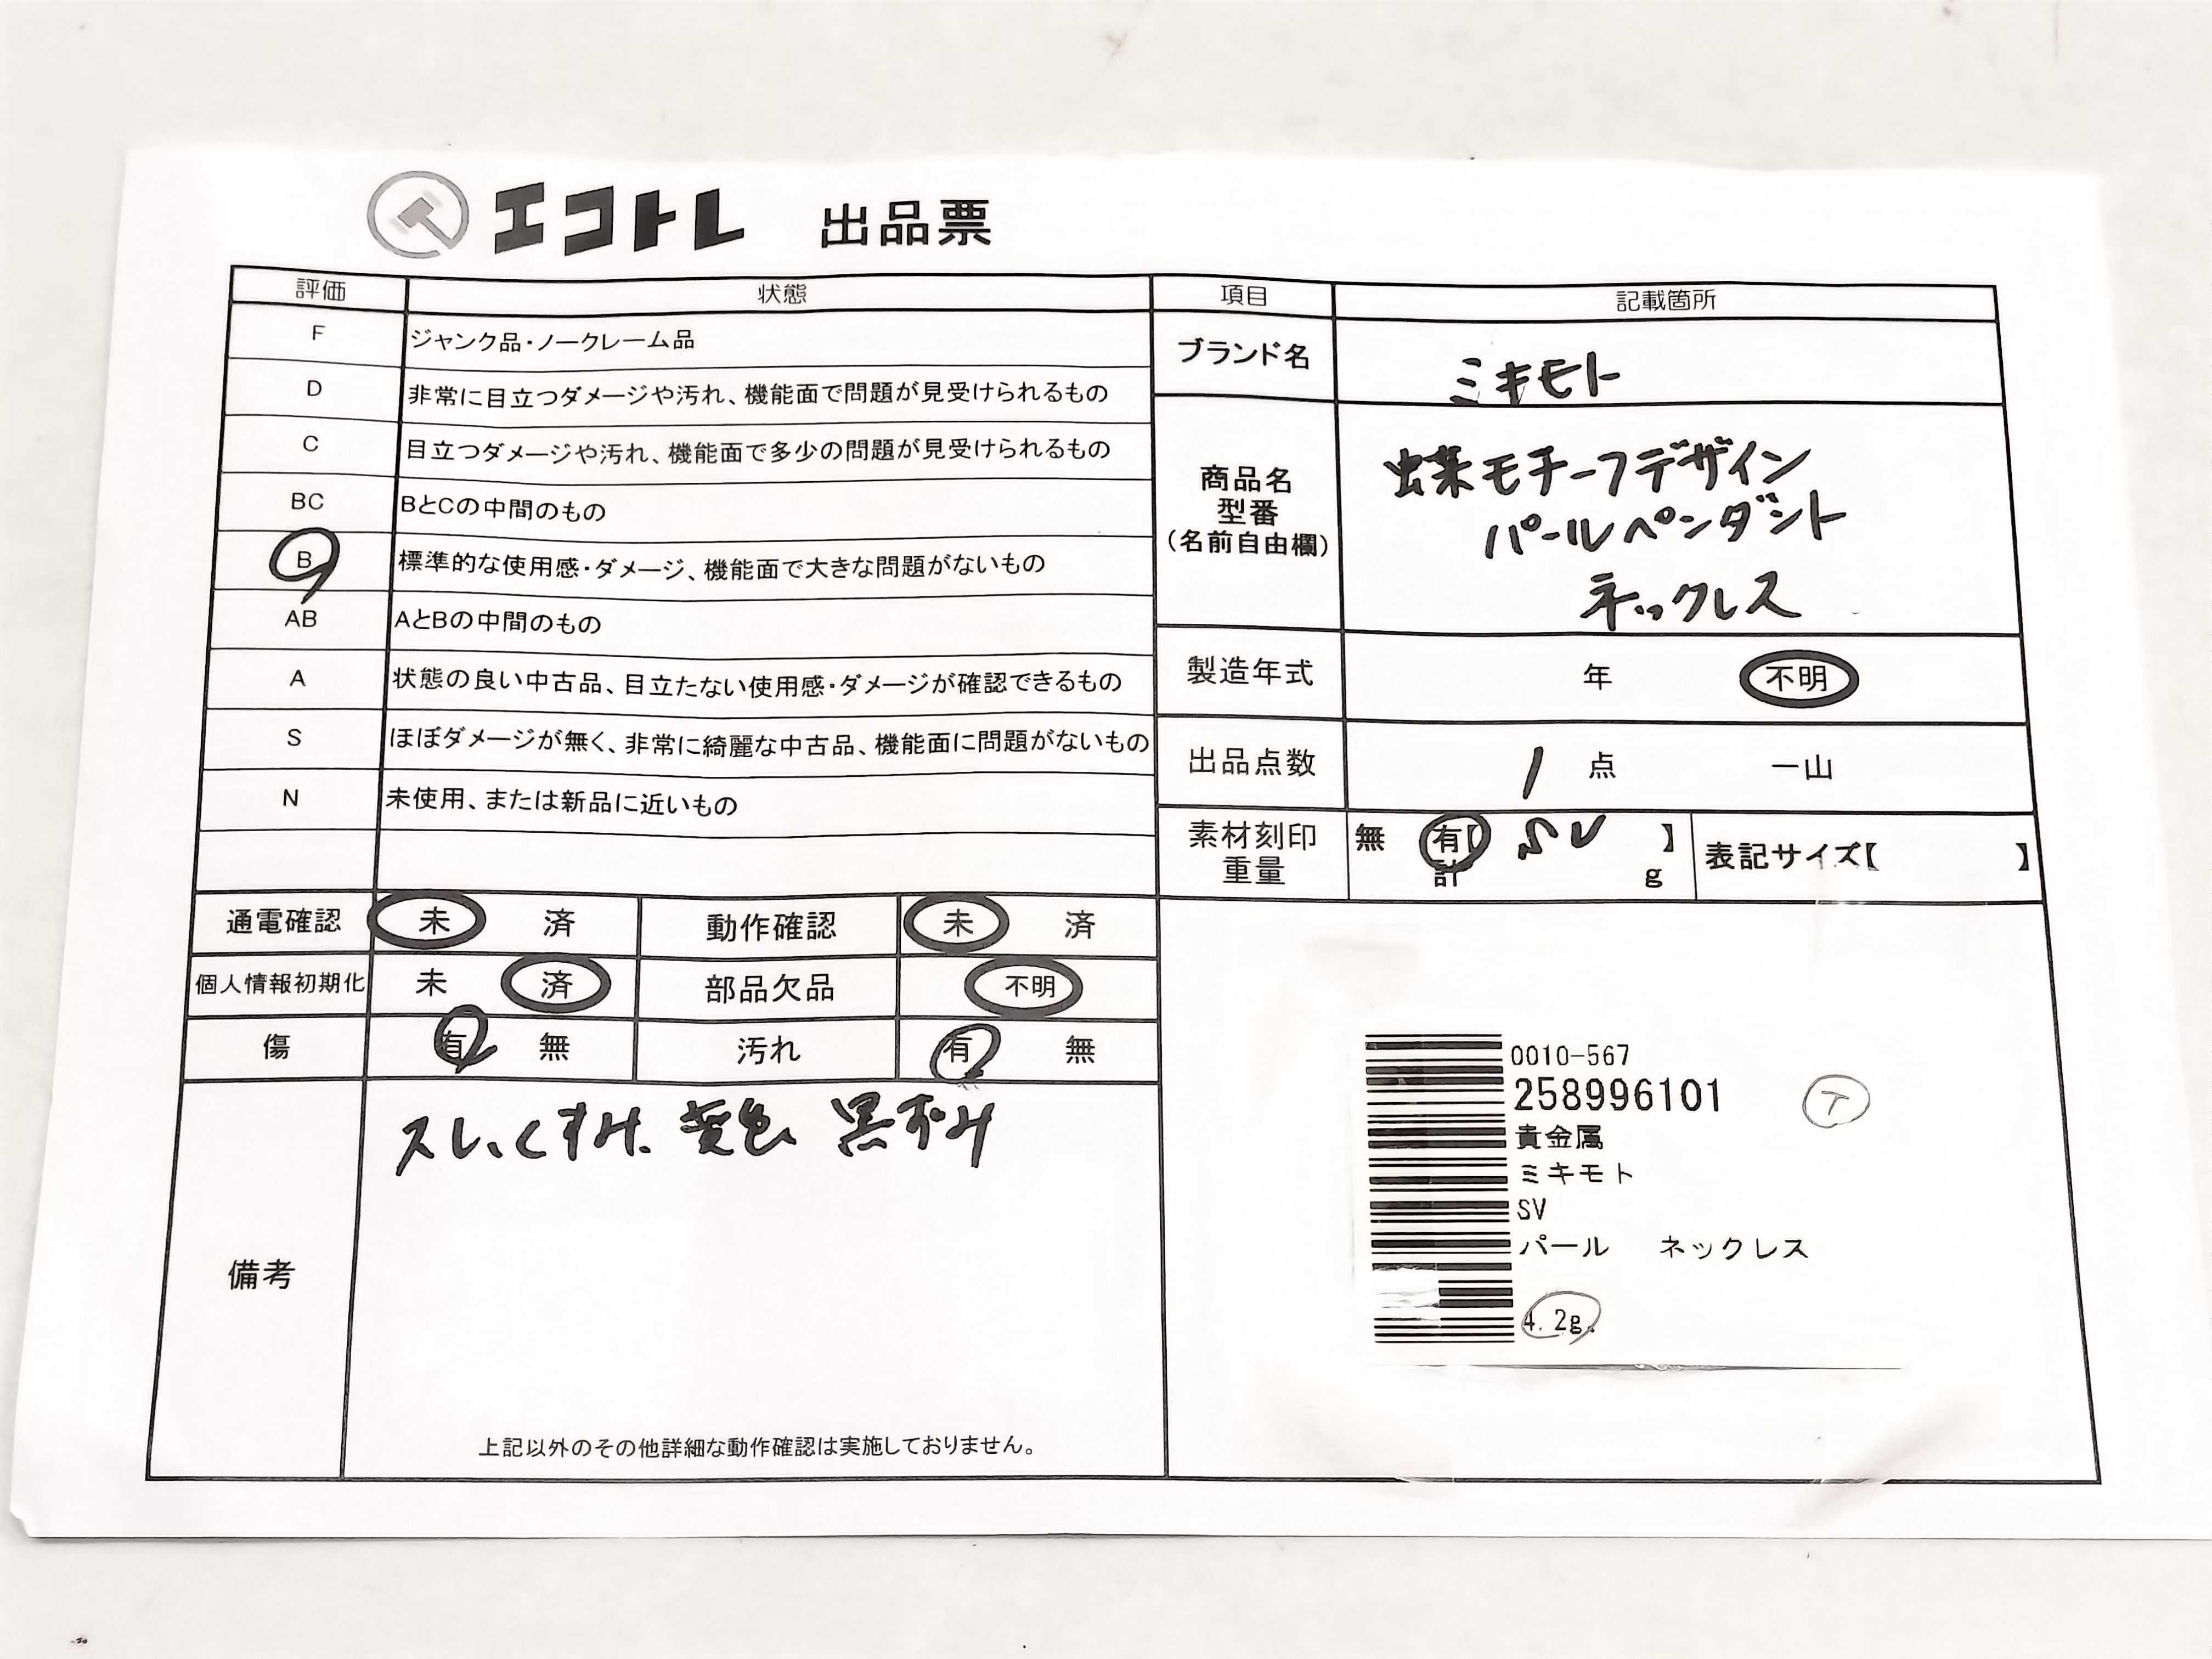 エコトレ 出品票
評価 状態
F ジャンク品・ノークレーム品
D 非常に目立つダメージや汚れ、機能面で問題が見受けられるもの
C 目立つダメージや汚れ、機能面で多少の問題が見受けられるもの
BC BとCの中間のもの
B 標準的な使用感・ダメージ、機能面で大きな問題がないもの
AB AとBの中間のもの
A 状態の良い中古品、目立たない使用感・ダメージが確認できるもの
S ほぼダメージが無く、非常に綺麗な中古品、機能面に問題がないもの
N 未使用、または新品に近いもの
通電確認 未 済 動作確認 未 済
個人情報初期化 未 済 部品欠品 不明
傷 有 無 汚れ 有 無
備考
スレ、くすみ、変色 黒ずみ
上記以外のその他詳細な動作確認は実施しておりません。
項目 記載箇所
ブランド名 ミキモト
商品名
型番
(名前自由欄)
蝶モチーフデザイン
パールペンダント
ネックレス
製造年式 年 不明
出品点数 1 点 一山
素材刻印
重量
無 有【 SV 】
計 g
表記サイズ【 】
0010-567
258996101
ア
貴金属
ミキモト
SV
パール ネックレス
4.2g.